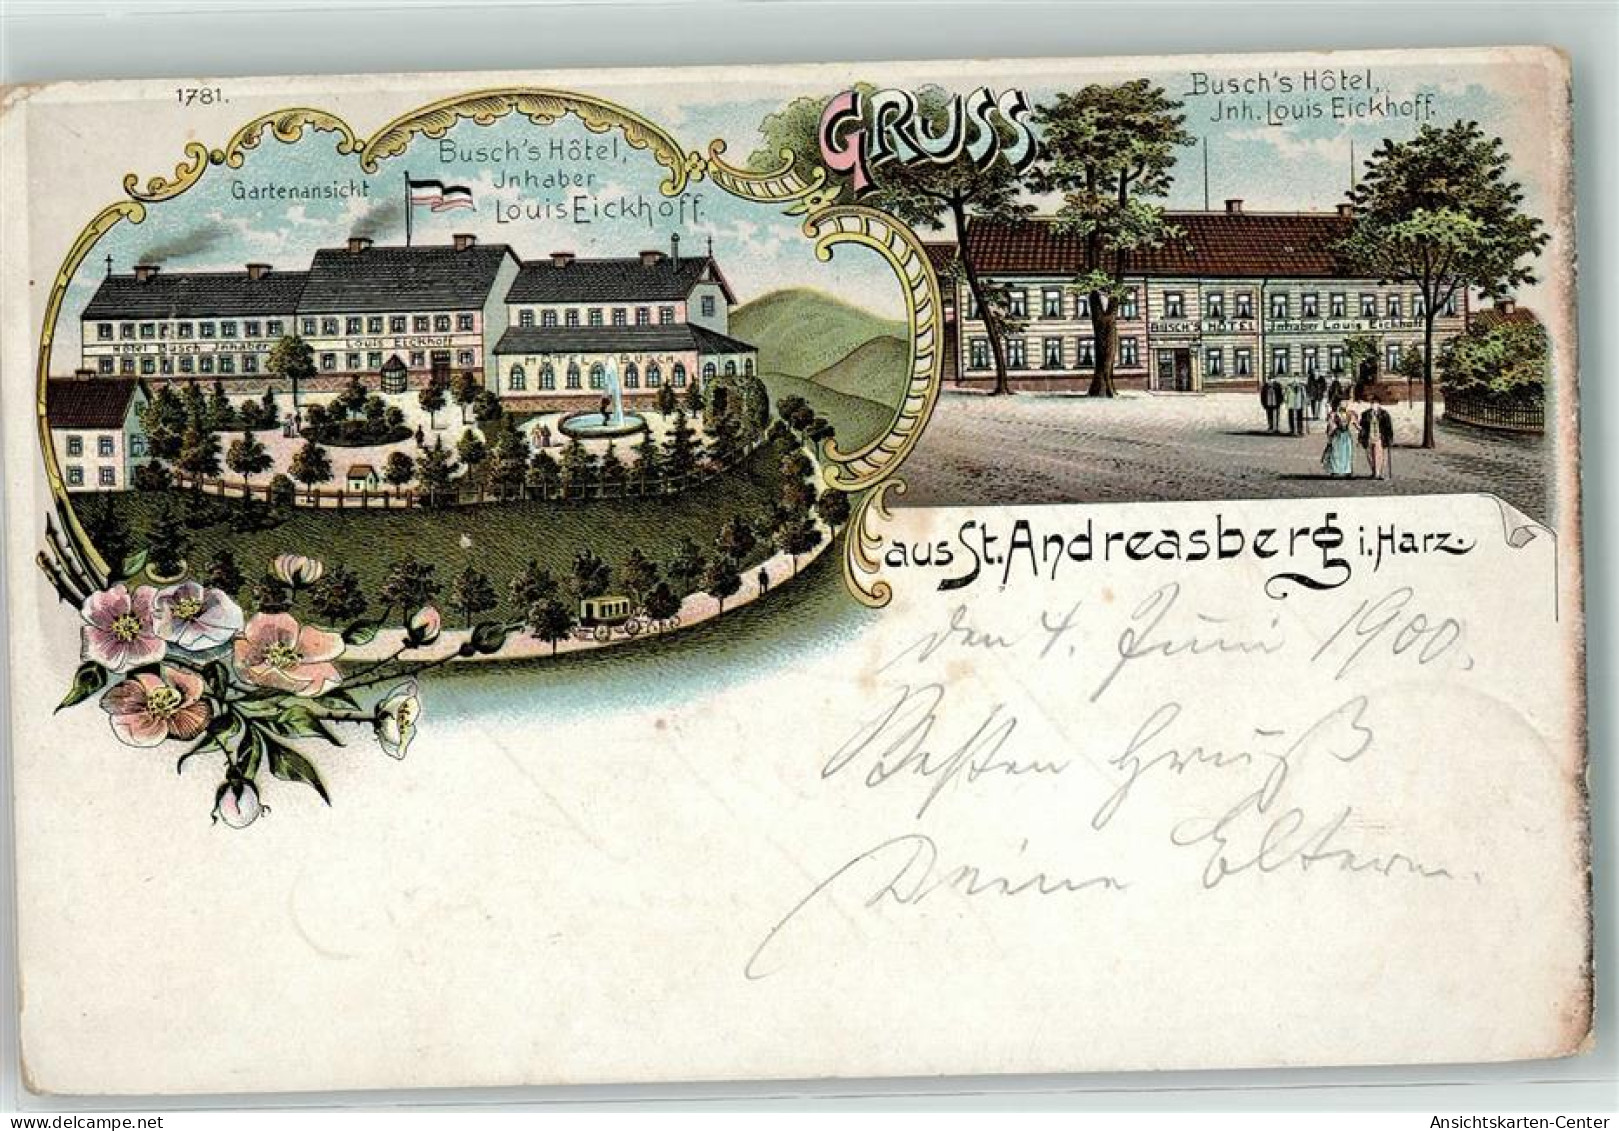 1781.
Gartenansicht
Busch's Hôtel,
Jnhaber
Louis Eickhoff.
Hôtel Busch Jnhaber Louis Eickhoff
HÔTEL BUSCH
GRUSS
Busch's Hôtel,
Jnh. Louis Eickhoff.
BUSCH'S HÔTEL Jnhaber Louis Eickhoff
aus St. Andreasberg i. Harz.
den 4. Juni 1900.
Besten Gruß
Deine Eltern.
Ansichtskarten-Center